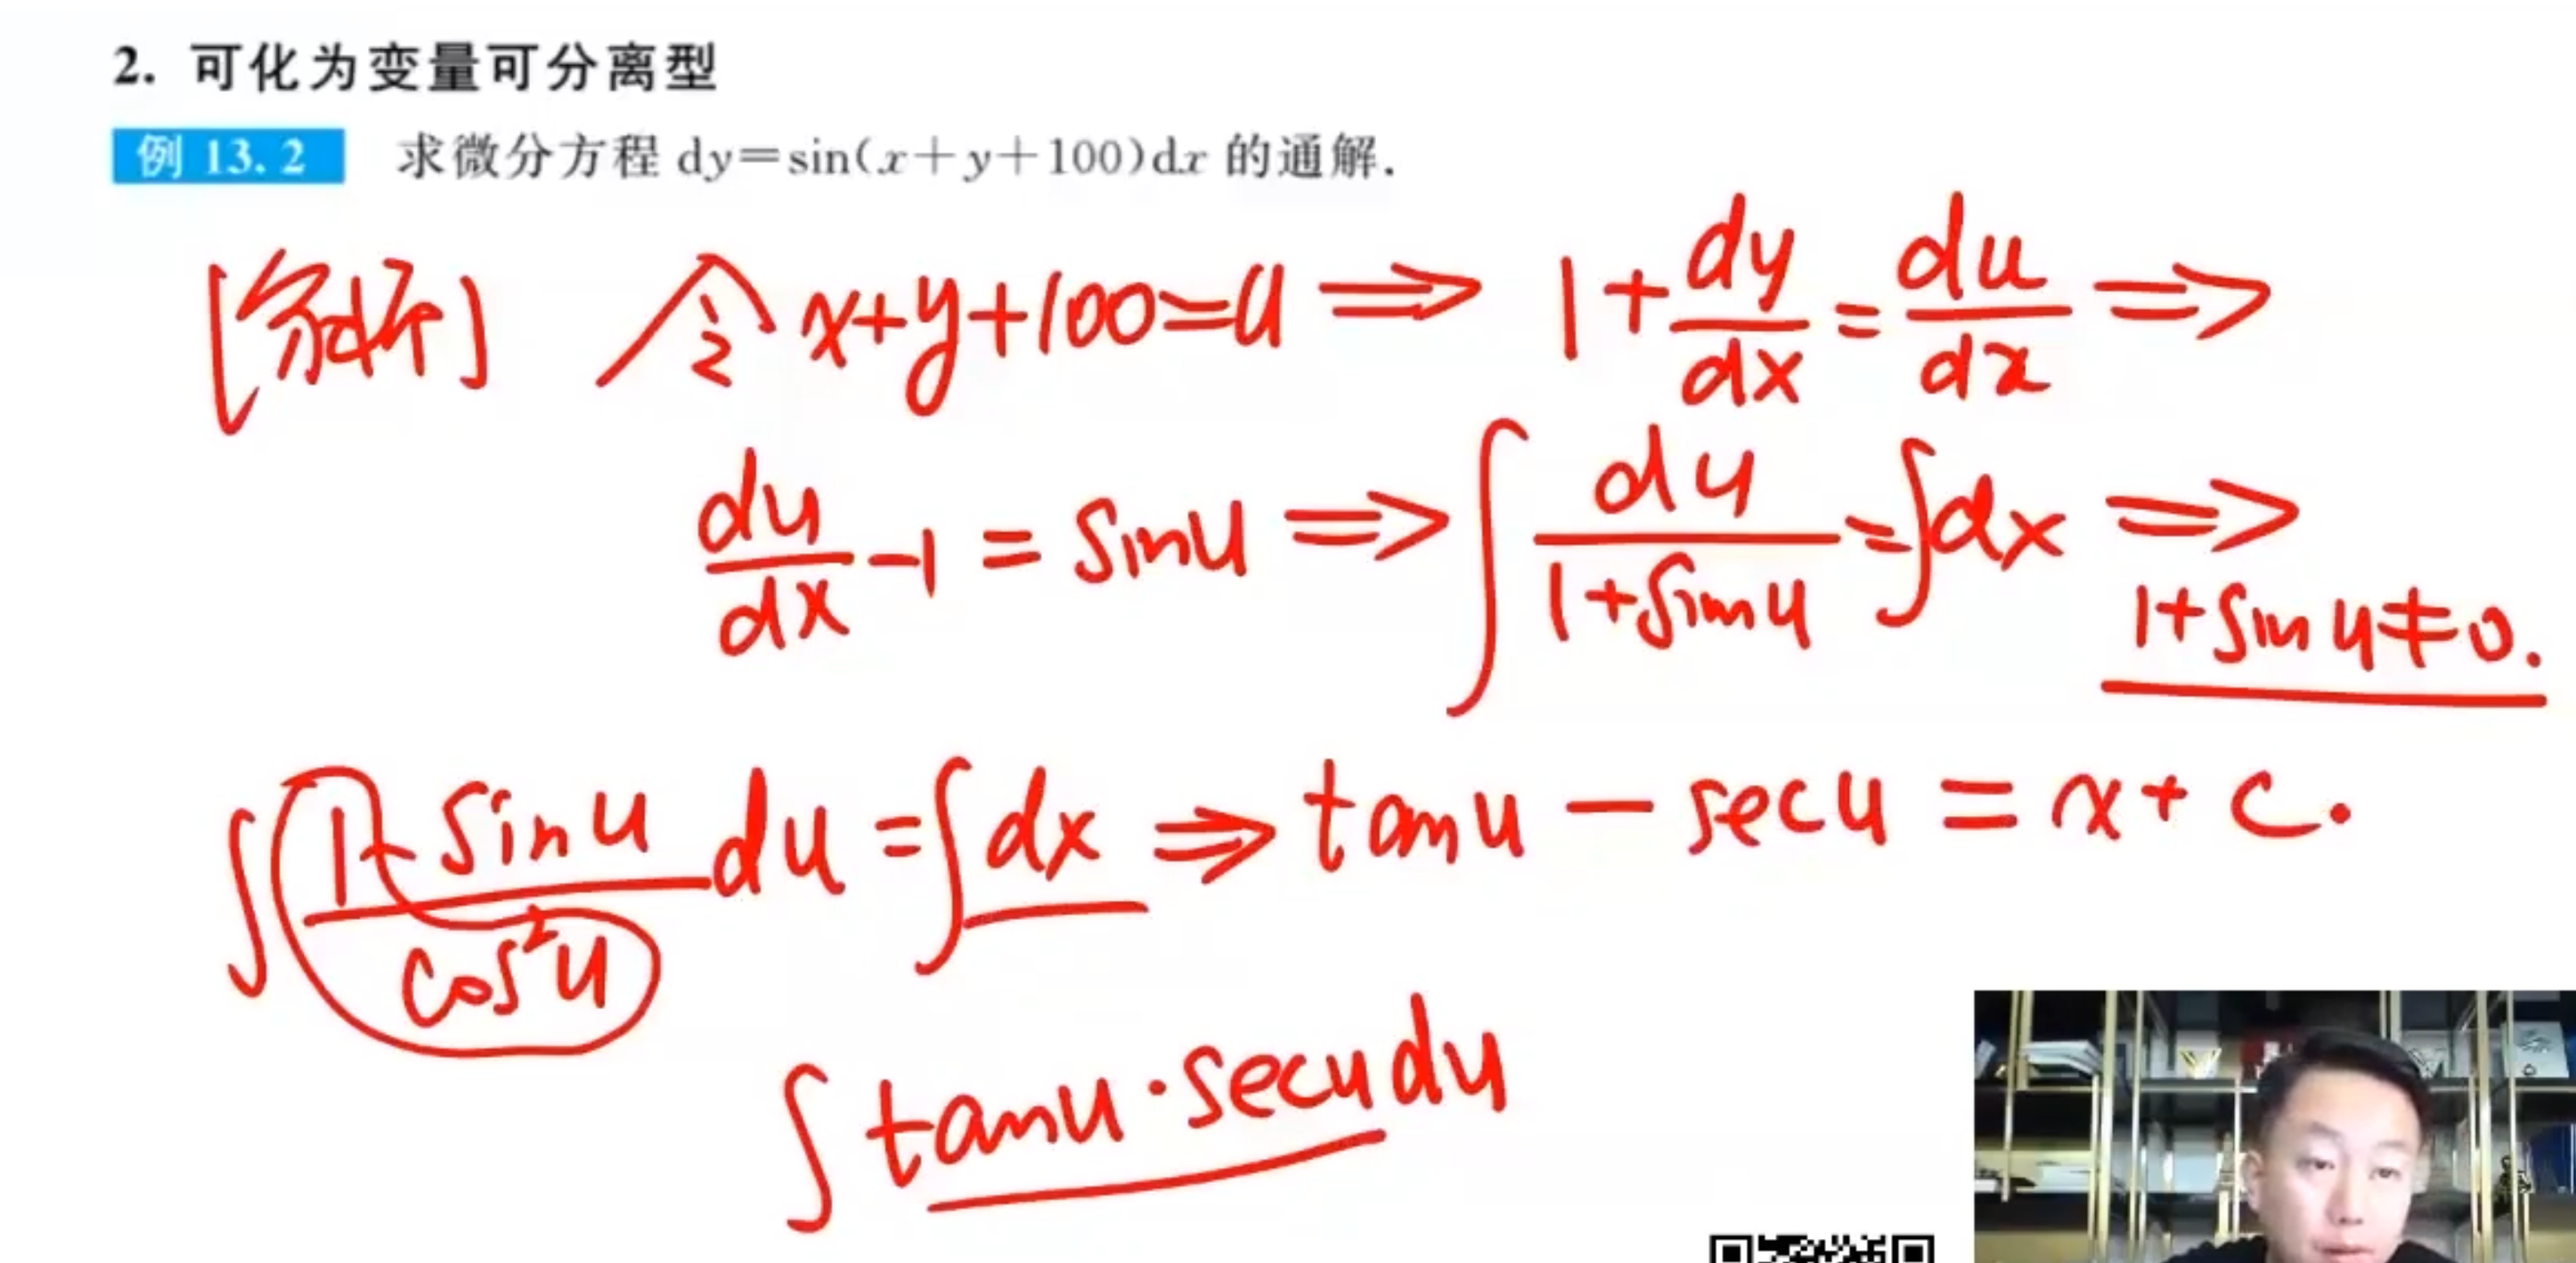 2. 可化为变量可分离型
例 13.2 求微分方程 dy=sin(x+y+100)dx 的通解.
[分析] 令 x+y+100=u ⇒ 1+dy/dx=du/dx ⇒
du/dx-1=sinu ⇒ ∫du/(1+sinu)=∫dx ⇒
1+sinu≠0.
∫(1-sinu)/cos²u du=∫dx ⇒ tanu-secu=x+c.
∫tanu·secudu